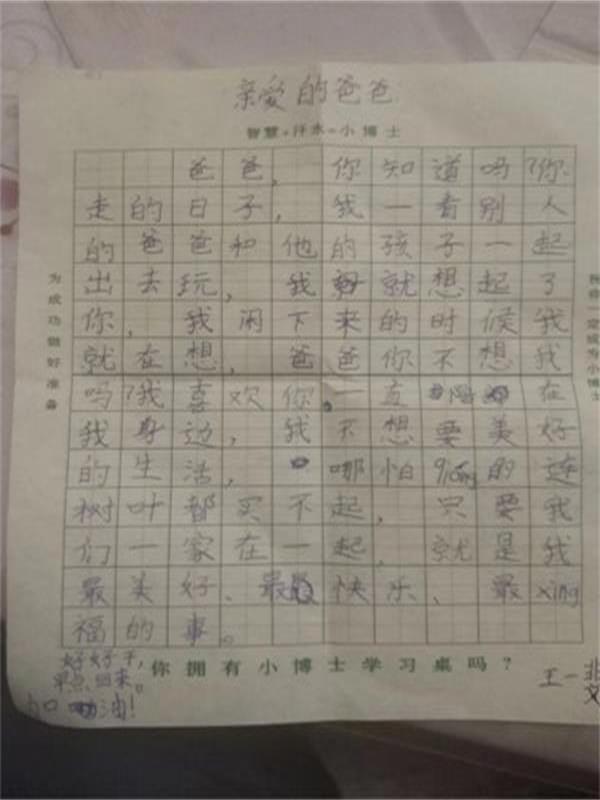 亲爱的爸爸
智慧+汗水=小博士
爸爸,你知道吗?你
走的日子,我一看别人
的爸爸和他的孩子一起
出去玩,我就想起了
你,我闲下来的时候我
就在想,爸爸你不想我
吗?我喜欢你。一直陪在
我身边,我不想要美好
的生活,哪怕qiong的连
树叶都买不起,只要我
们一家在一起,就是我
最美好、最快乐、最xing
福的事。
为成功做好准备
你一定成为小博士
好好干,
早点回来。
加油!
你拥有小博士学习桌吗?
王一斐